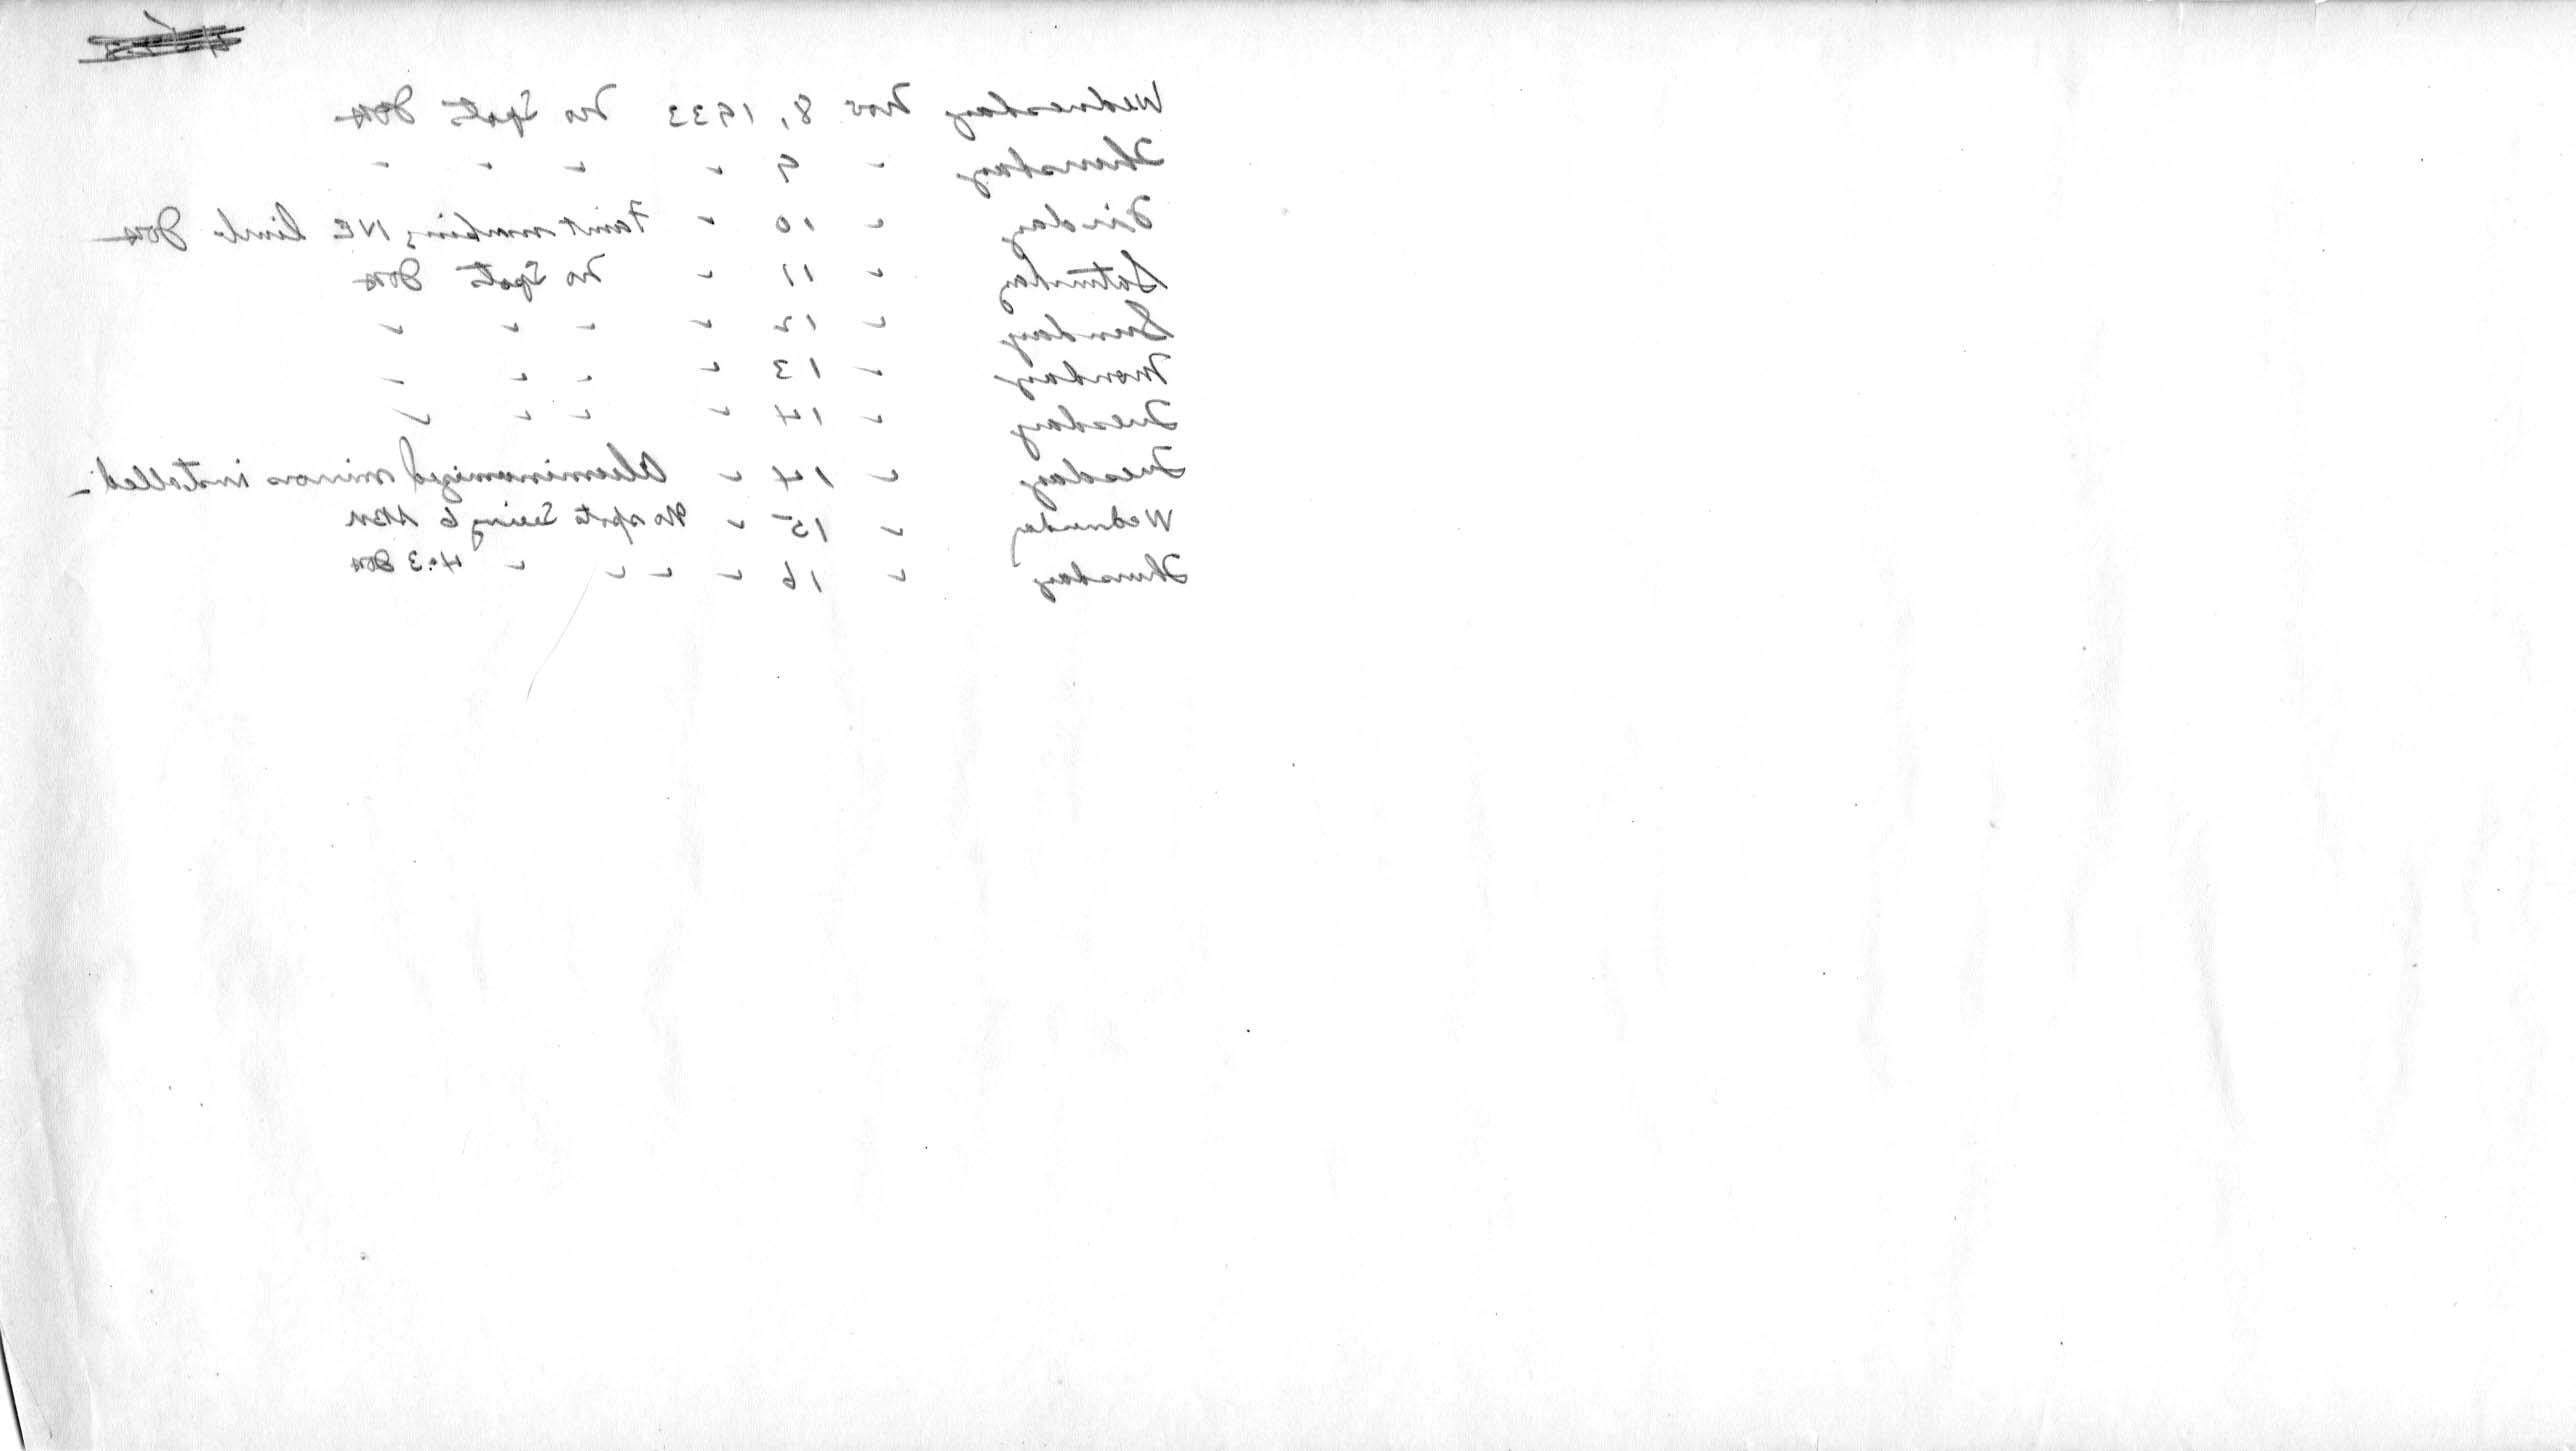 Wednesday Nov 8, 1933 No Spots
Thursday " 9 " " " "
Friday " 10 " Faint marking NE limb
Saturday " 11 " No Spots
Sunday " 12 " " " "
Monday " 13 " " " "
Tuesday " 14 " " " "
Tuesday " 14 " Aluminumized mirrors installed -
Wednesday " 15 " No spots Seeing 6 SBN
Thursday " 16 " " " " 4:3